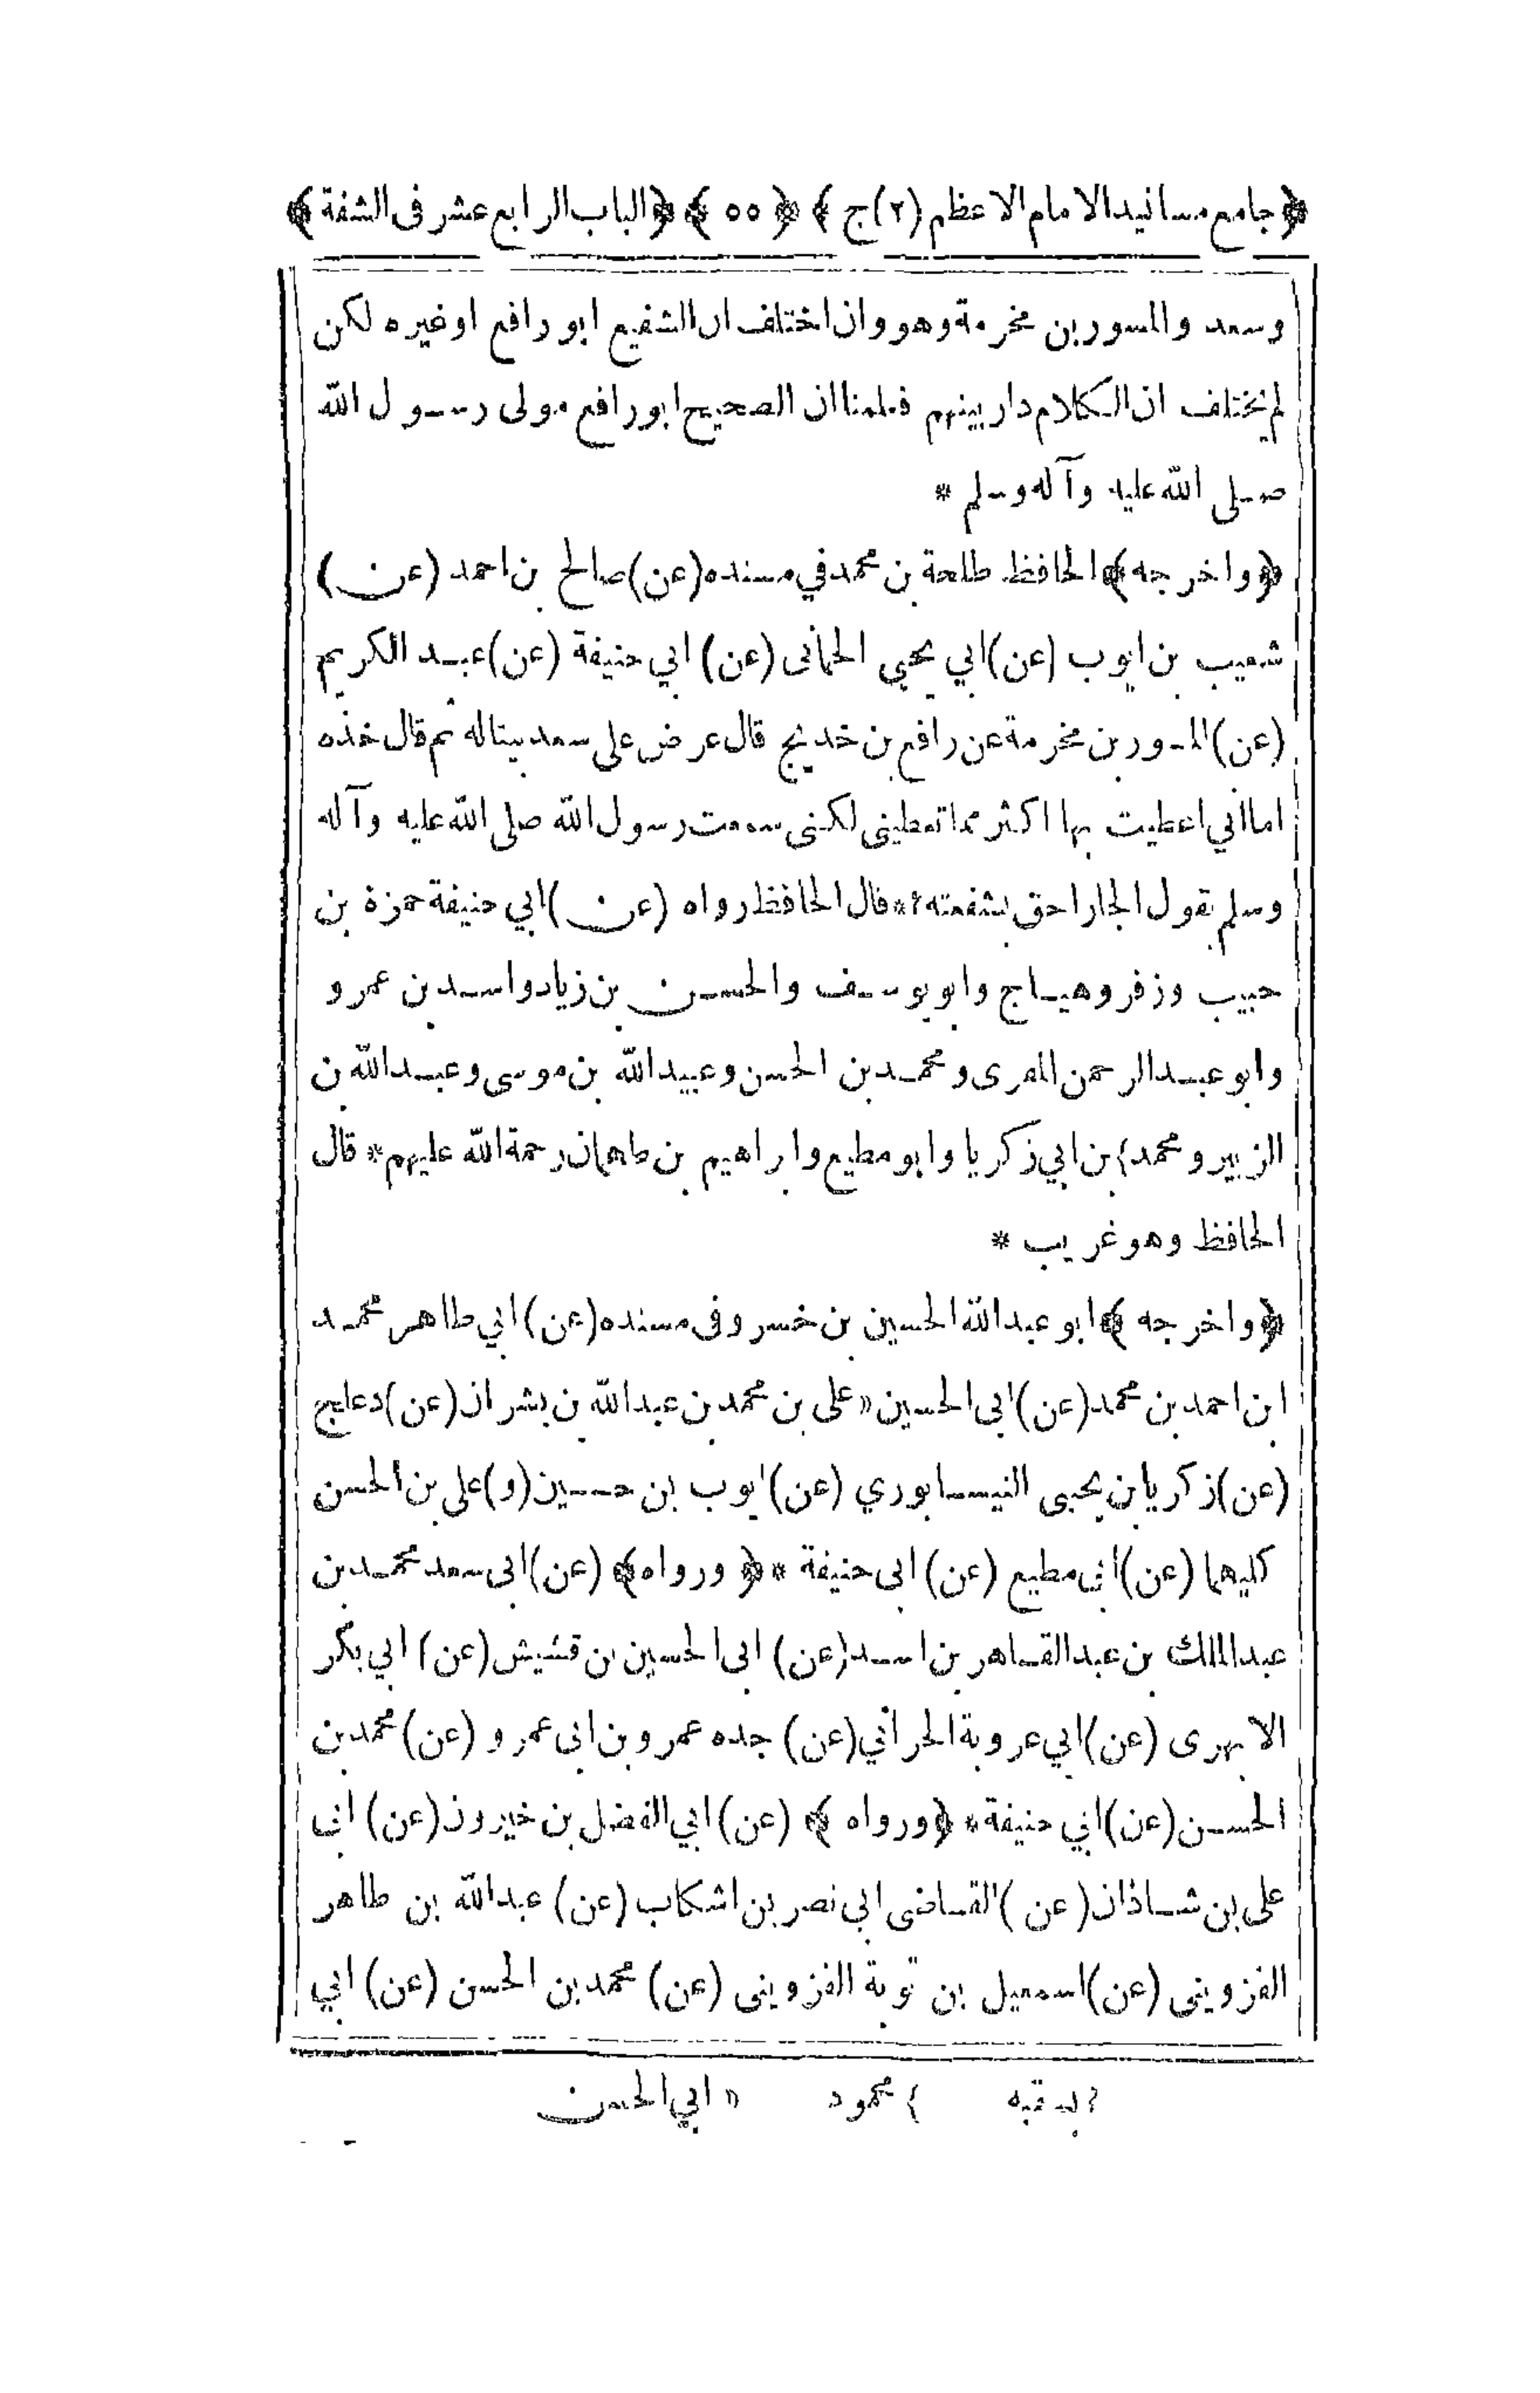 ﴿جامع مسانيد الامام الاعظم (٢) ج﴾ ﴿٥٥﴾ ﴿الباب الرابع عشر فى الشفة﴾
وسعد والمسور بن مخرمة وهو وان اختلف ان الشفيع ابو رافع اوغيره لكن
لم يختلف ان الكلام دار بينهم فعلمنا ان الصحيح ابو رافع مولى رسول الله
صلى الله عليه وآله وسلم *
﴿واخرجه﴾ الحافظ طلحة بن محمد في مسنده (عن) صالح بن احمد (عن)
شعيب بن ايوب (عن) ابي يحيى الحمانى (عن) ابي حنيفة (عن) عبد الكريم
(عن) المسور بن مخرمة عن رافع بن خديج قال عرض على سعد بيتاله ثم قال خذه
اما اني اعطيت بها اكثر مما تعطينى لكنى سمعت رسول الله صلى الله عليه وآله
وسلم يقول الجار احق بشفعته ٢ * قال الحافظ رواه (عن) ابي حنيفة حمزة بن
حبيب وزفر وهياج وابو يوسف والحسن بن زياد واسد بن عمرو
وابو عبد الرحمن المقرى ومحمد بن الحسن وعبيد الله بن موسى وعبد الله بن
الزبير ومحمد } بن ابي زكريا وابو مطيع وابراهيم بن طهمان رحمة الله عليهم * قال
الحافظ وهو غريب *
﴿واخرجه﴾ ابو عبد الله الحسين بن خسرو فى مسنده (عن) ابي طاهر محمد
ابن احمد بن محمد (عن) ابى الحسين » على بن محمد بن عبد الله بن بشران (عن) دعلج
(عن) زكريا بن يحيى النيسابوري (عن) ايوب بن حسين (و) على بن الحسن
كليهما (عن) ابى مطيع (عن) ابى حنيفة * ﴿ورواه﴾ (عن) ابى سعد محمد بن
عبد الملك بن عبد القاهر بن اسد (عن) ابى الحسين بن قشيش (عن) ابي بكر
الابهرى (عن) ابي عروبة الحراني (عن) جده عمرو بن ابى عمرو (عن) محمد بن
الحسن (عن) ابي حنيفة * ﴿ورواه﴾ (عن) ابي الفضل بن خيرون (عن) ابى
على بن شاذان (عن) القاضى ابي نصر بن اشكاب (عن) عبد الله بن طاهر
القزوينى (عن) اسمعيل بن توبة القزوينى (عن) محمد بن الحسن (عن) ابي
٢ بسقبه } محمود » ابي الحسن